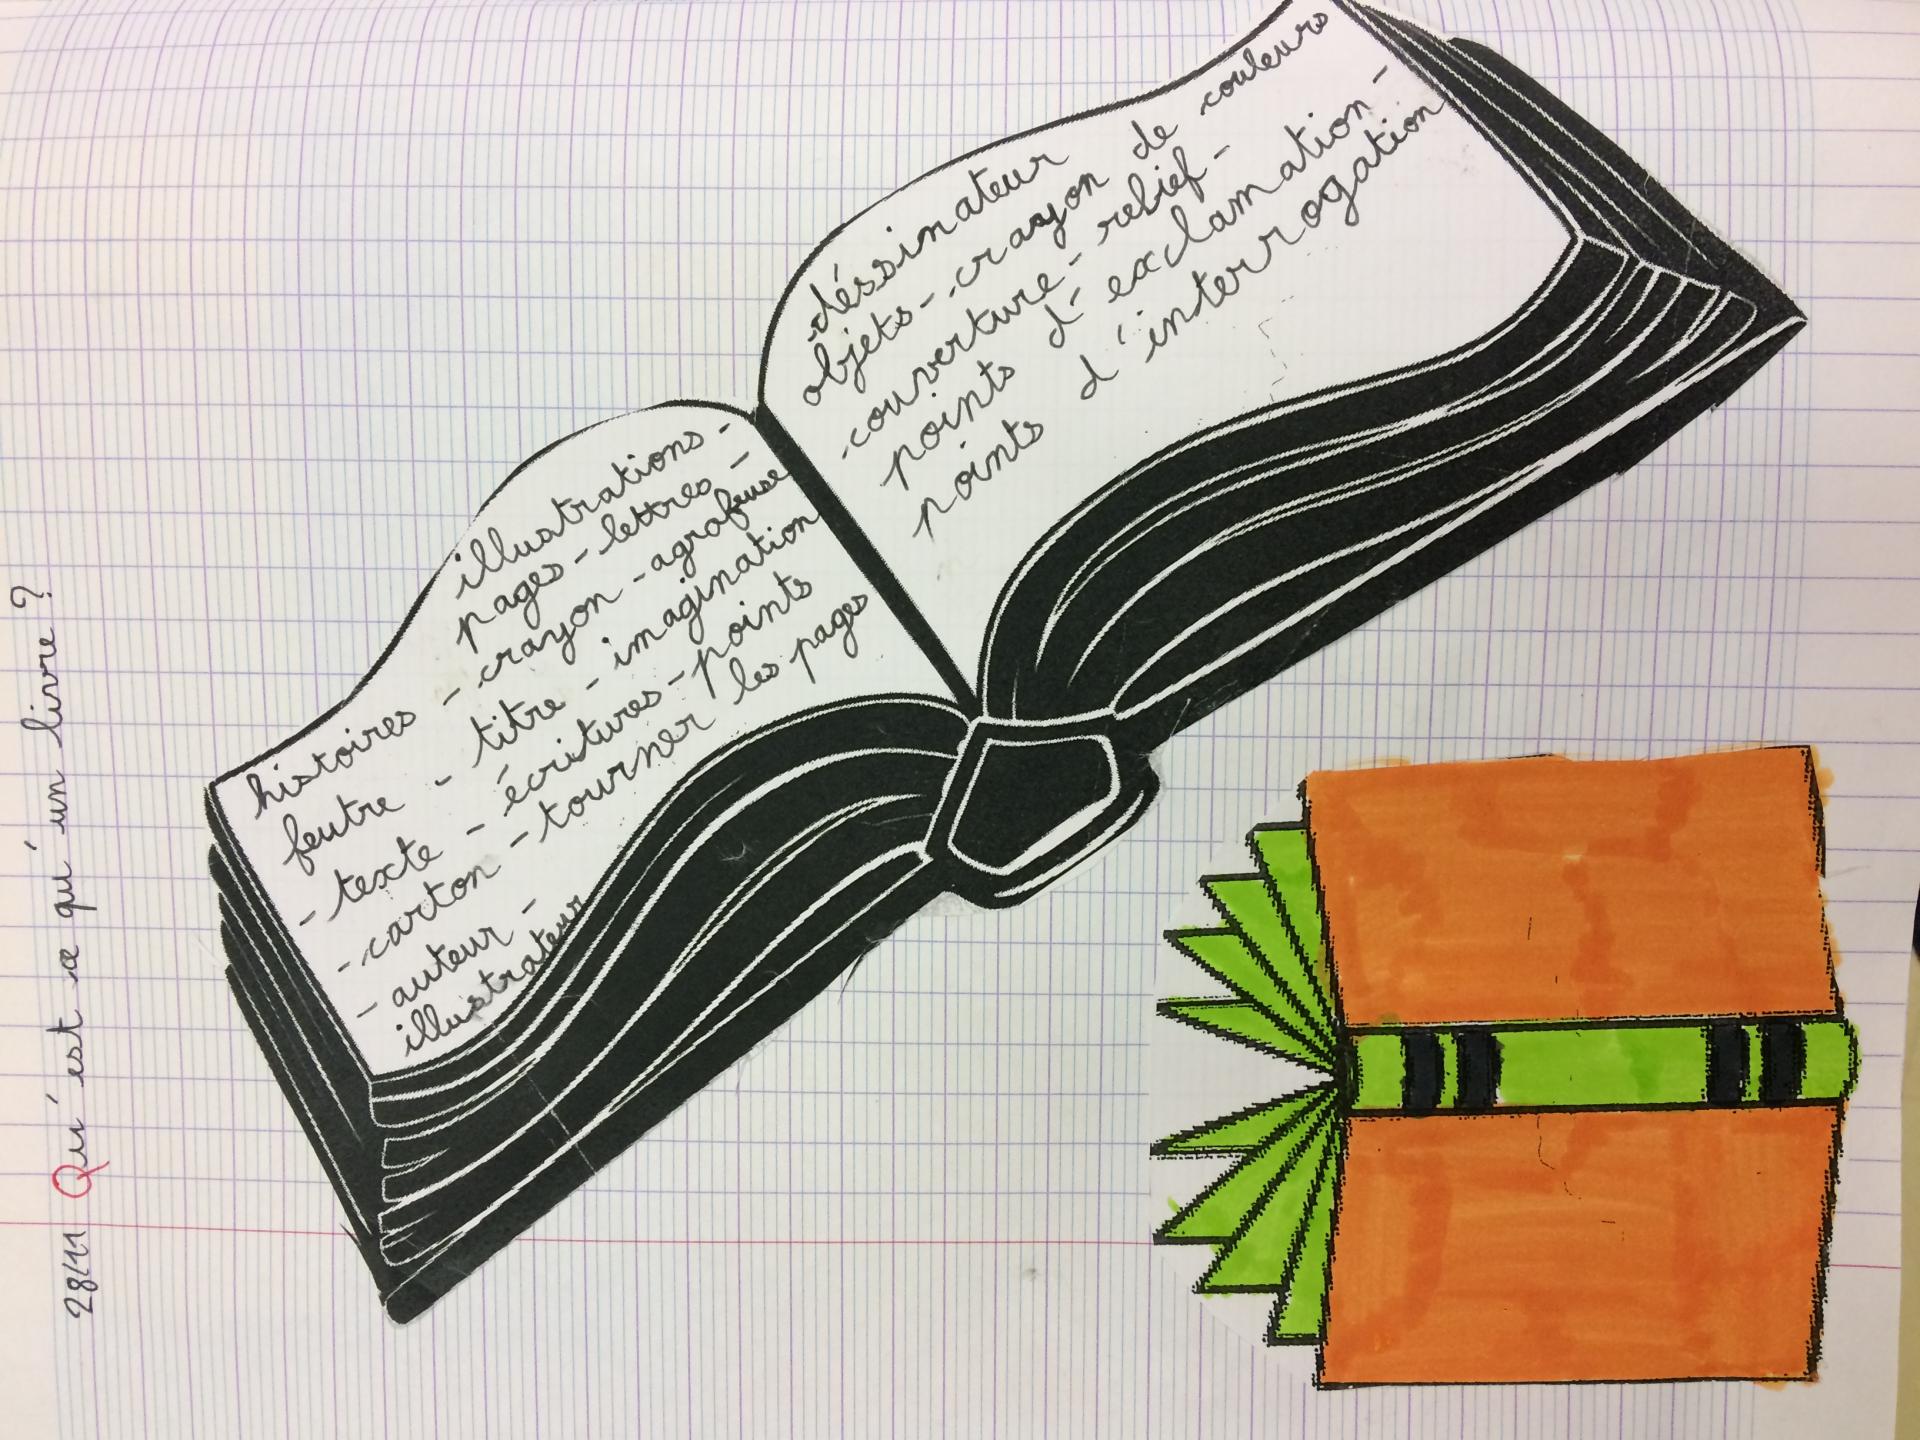 28/11 Qu'est ce qu'un livre ?
illustrations -
pages - lettres -
histoires - crayon - agrafeuse
feutre - titre - imagination
- texte - écritures - points
- carton - tourner les pages
- auteur -
illustrateur
déssinateur
objets - crayon de couleurs
couverture - relief -
points d'exclamation -
points d'interrogation